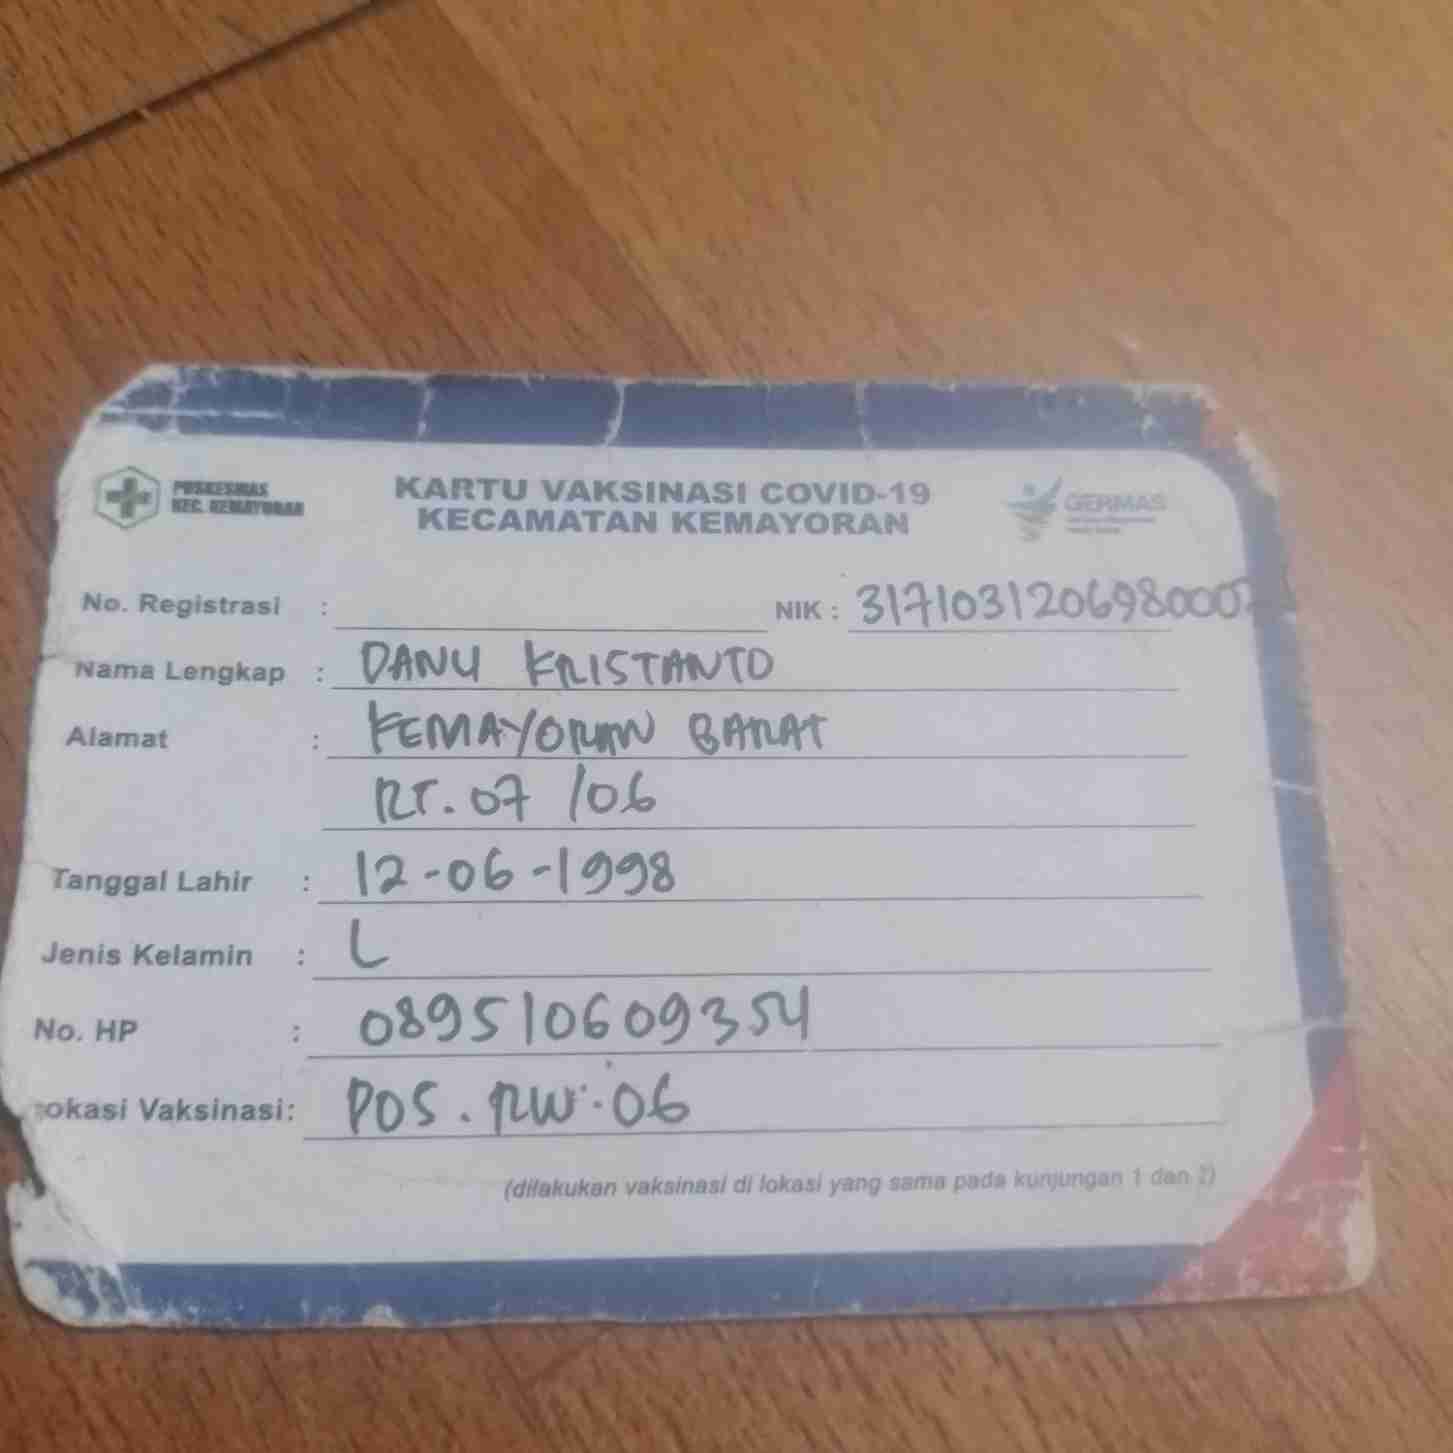 PUSKESMAS
KEC. KEMAYORAN
KARTU VAKSINASI COVID-19
KECAMATAN KEMAYORAN
GERMAS
No. Registrasi : NIK :
Nama Lengkap : DANU KRISTANTO
Alamat : KEMAYORAN BARAT
RT. 07 /06
Tanggal Lahir : 12-06-1998
Jenis Kelamin : L
No. HP : 089510609354
okasi Vaksinasi: POS. RW. 06
(dilakukan vaksinasi di lokasi yang sama pada kunjungan 1 dan 2)